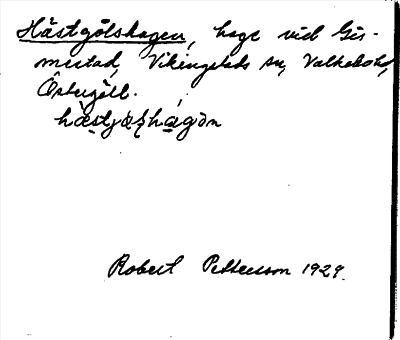 Hästgölshagen, hage vid Gis-
mestad, Vikingstads sn, Valkebo hd,
Östergötl.
Robert Pettersson 1929.